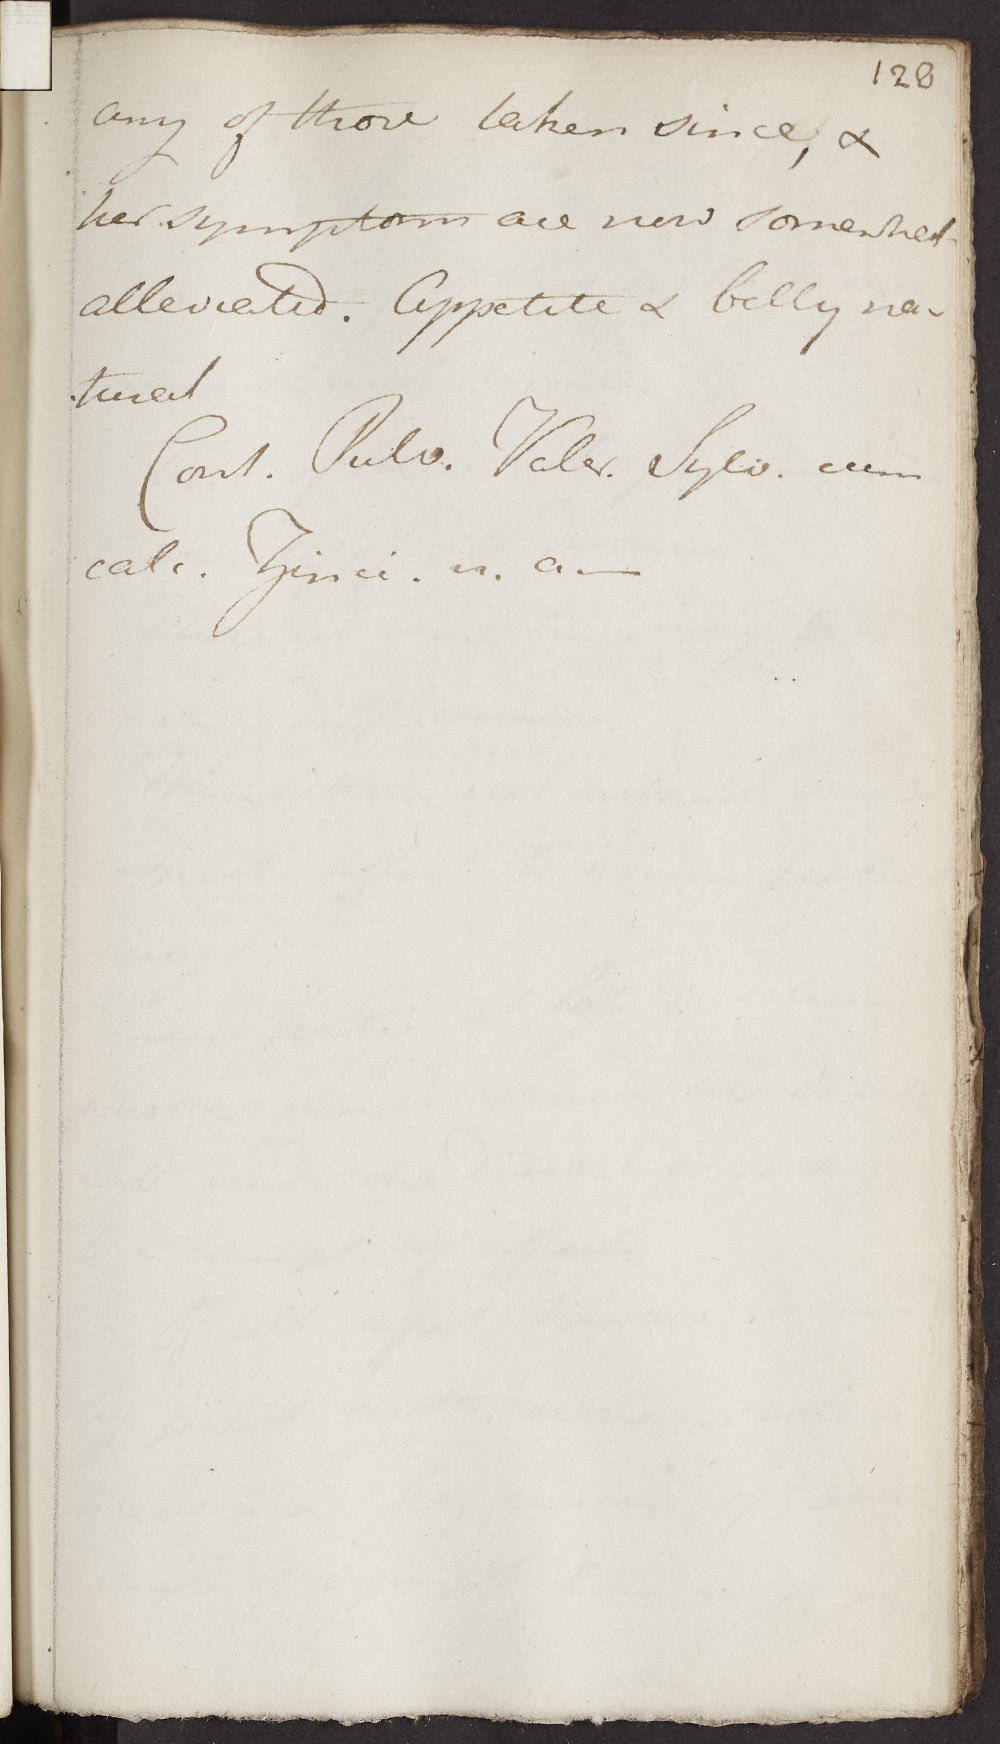 128
any of those taken since, &
her symptoms are now somewhat
alleviated. Appetite & belly na-
tural
Cont. Pulv. Valer. Sylv. cum
calc. Zinci. u. a—